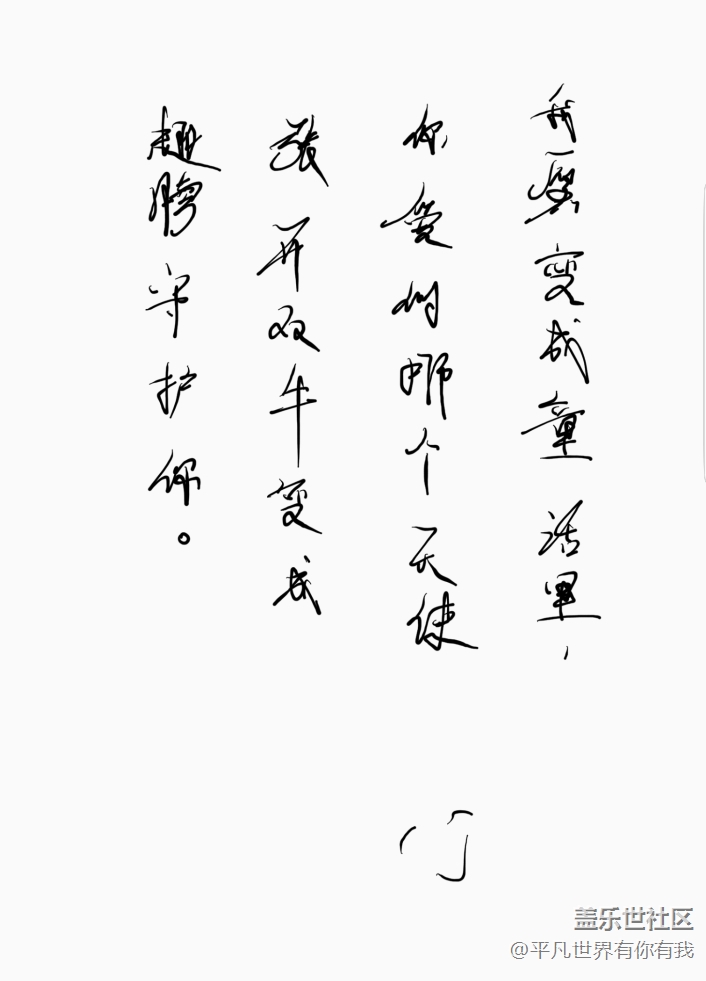 我愿变成童话里，
你爱的哪个天使
张开双手变成
翅膀守护你。
盖乐世社区
@平凡世界有你有我